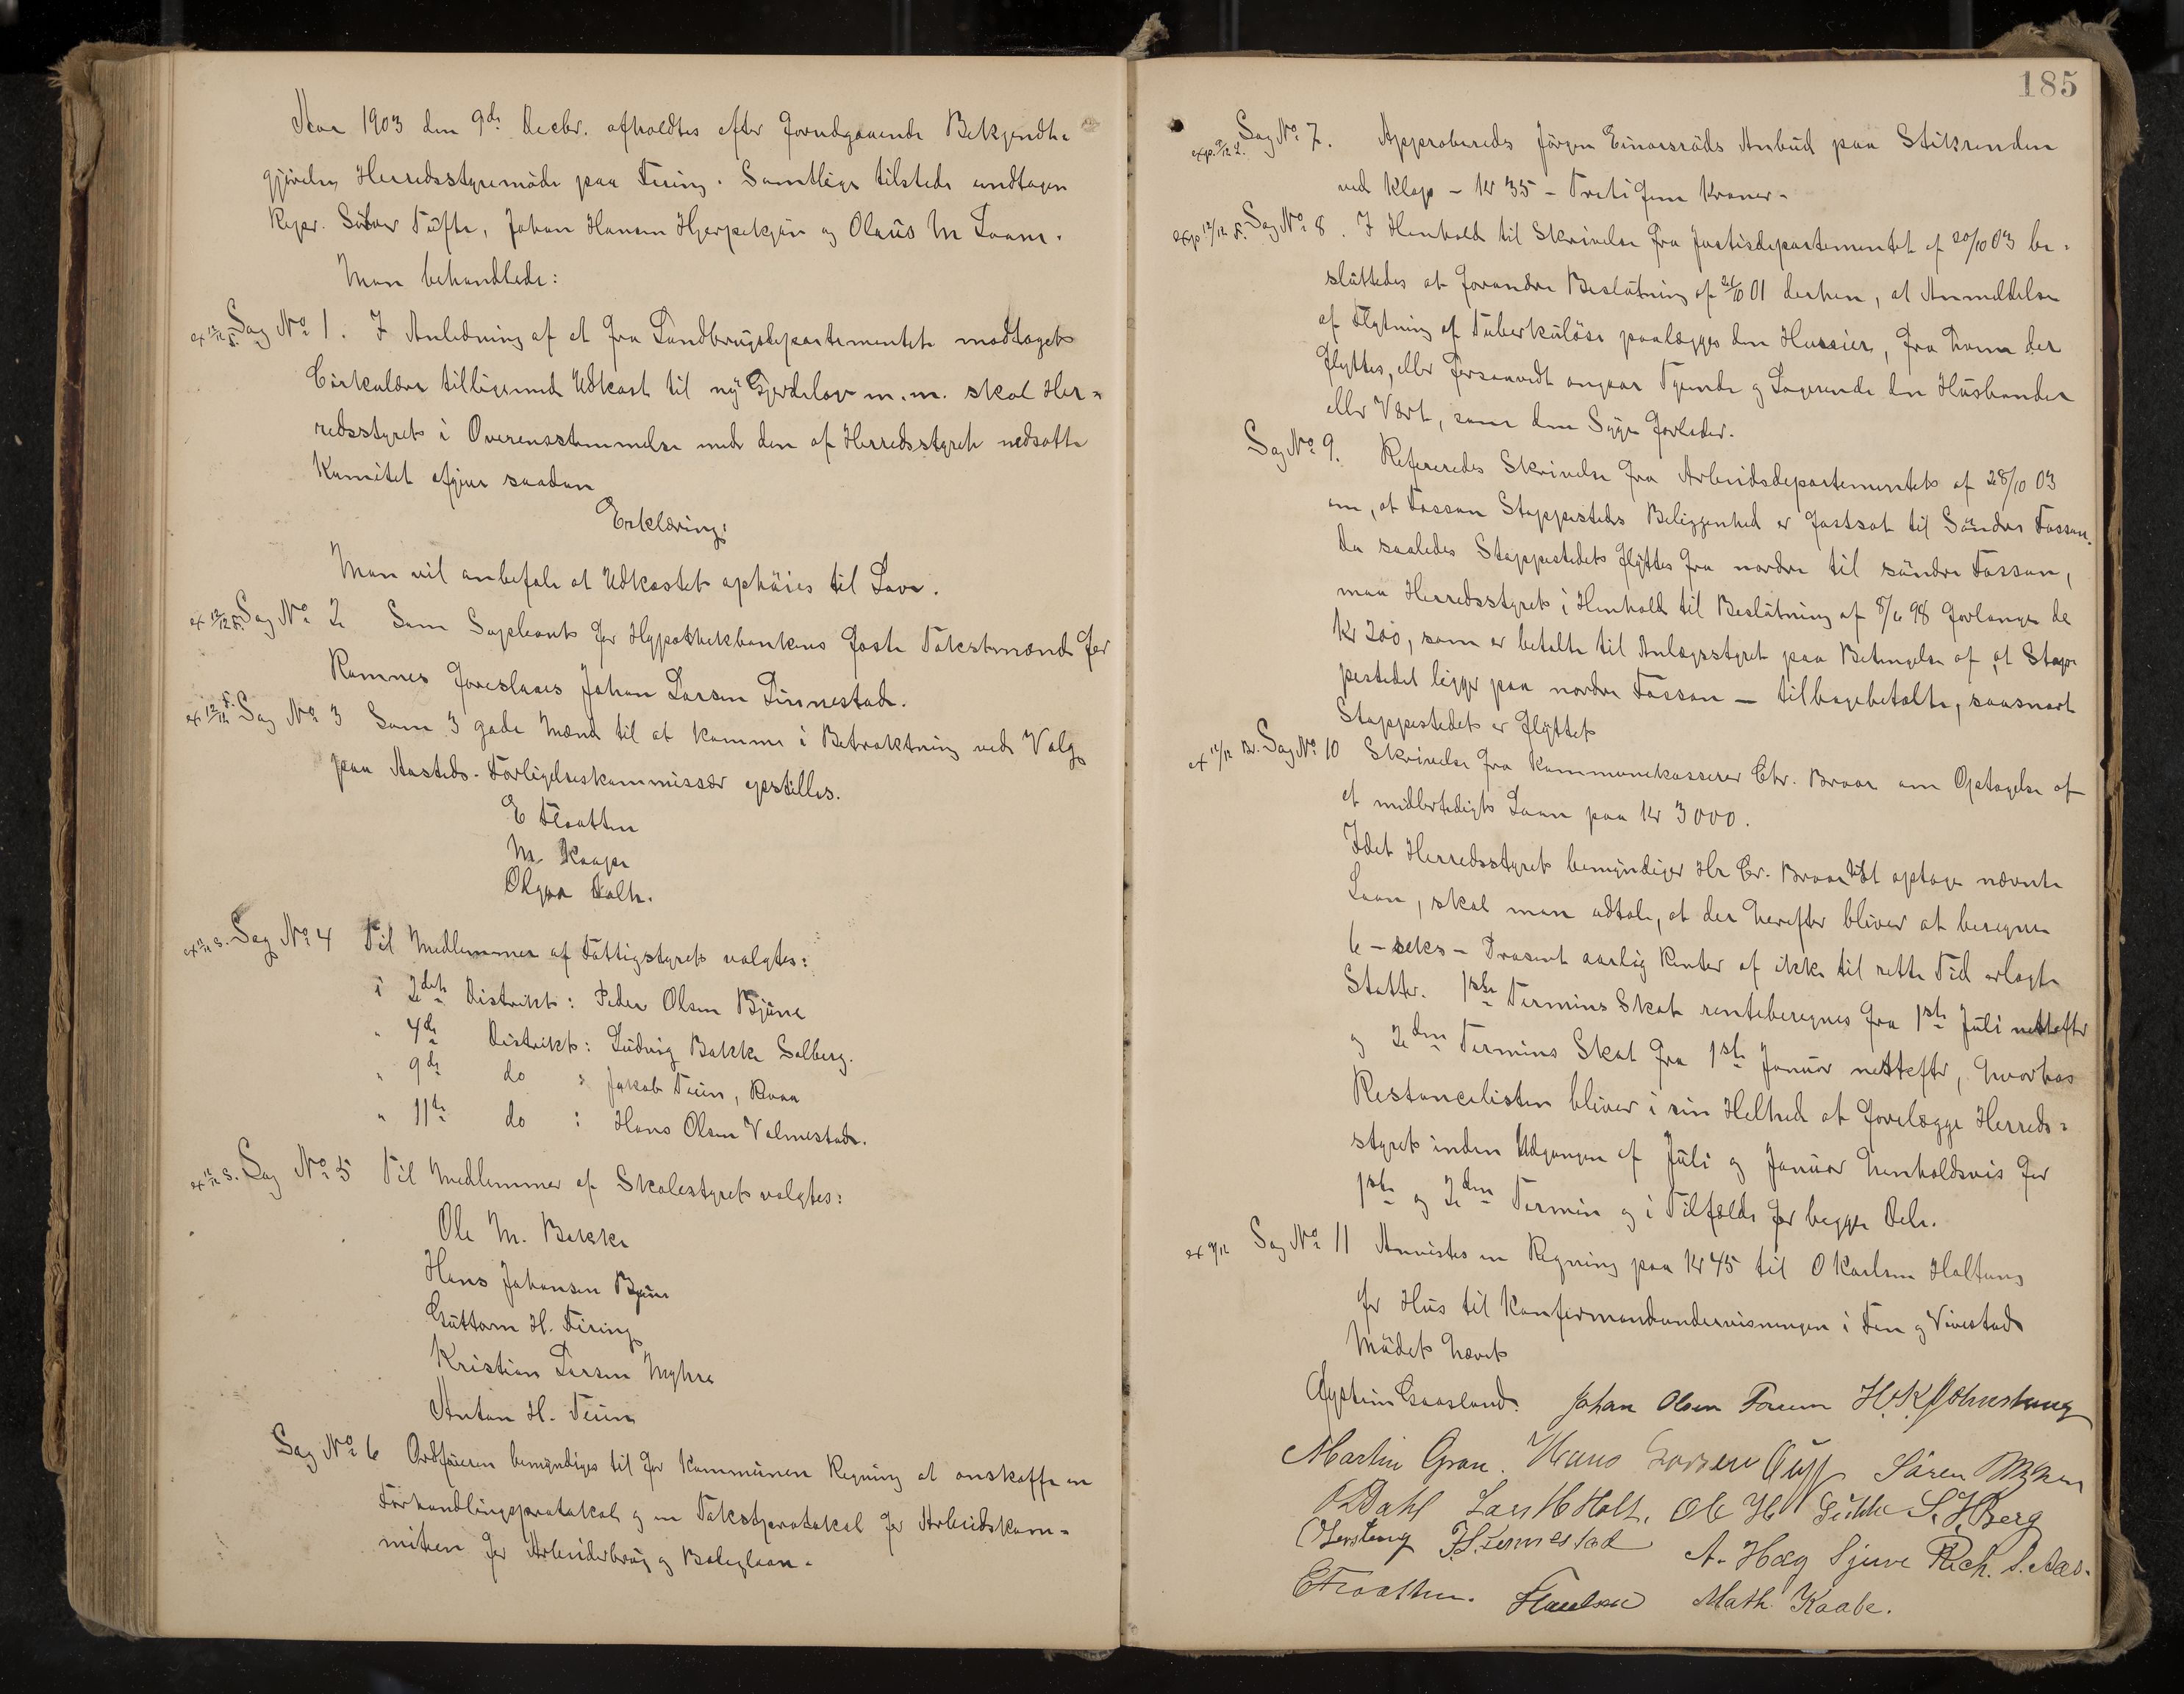 Aar 1903 den 9de Decbr. afholdtes efter forudgaaende Bekjendt-
gjörelse Herredsstyremöde paa Firing. Samtlige tilstede undtagen
Repr. Tufte, Johan Hansen Hjerpekjön og Olaus M Laane.
Man behandlede:
ex 12/12 S. Sag No 1. I Anledning af et fra Landbrugsdepartementet modtaget
Cirkulære tilligemed Udkast til ny Gjerdelov m.m. skal Her-
redsstyret i Overensstemmelse med den af Herredsstyret nedsatte
Komitet afgive saadan
Erklæring:
Man vil anbefale at Udkastet ophöies til Lov.
ex 12/12 S. Sag No 2 Som Supleant for Hypothekbankens faste Takstmænd for
Ramnes foreslaaes Johan Larsen Linnestad.
ex 12/12 S. Sag No 3 Som 3 gode Mænd til at komme i Betraktning ved Valg
paa Aasteds-Forligelseskommissær opstilles.
E Floatten
M. Kaape
Olgar Dalh.
ex 12/12 S. Sag No 4 Til Medlemmer af Fattigstyret valgtes:
i 2det Distrikt: Peder Olsen Bjüne
" 4de Distrikt: Ludvig Bakke Solberg.
" 9de do : Jakob Feen, Revaa
" 11te do : Hans Olsen Valmestad.
ex 12/12 S. Sag No 5 Til Medlemmer af Skolestyret valgtes:
Ole M. Bakke
Hans Johansen Bjüne
Guttorm H. Firing
Kristian Larsen Myhre
Anton H. Feen
Sag No 6 Ordföreren bemyndiges til for Kommunens Regning at anskaffe en
Forhandlingsprotokol og en Takstprotokol for Arbeidskom-
miteen for Arbeiderbrug og Boliglaan.
185
exp. 9/12 S. Sag No 7. Approberedes Jörgen Einarsröds Anbud paa Stikrenden
ved Klop – Kr 35 – Tretifem Kroner.
exp 12/12 S. Sag No 8. I Henhold til Skrivelse fra Justisdepartementet af 20/10 03 be-
sluttedes at forandre Beslutning af 01 derhen, at Anmeldelse
af Flytning af Tuberkulöse paalægges den Huseier, fra hvem der
flyttes, eller forsaavidt angaar Tyende og Logerende den Husbonde
eller Vært, som den Syge forlader.
Sag No 9. Refereredes Skrivelse fra Arbeidsdepartementet af 28/10 03
om, at Fossan Stoppesteds Beliggenhed er fastsat til Söndre Fossan.
Da saaledes Stoppestedet flyttes fra nordre til söndre Fossan,
maa Herredsstyret i Henhold til Beslutning af 8/6 98 forlange de
Kr 200, som er betalte til Anlægsstyret paa Betingelse af at Stop-
pestedet ligger paa nordre Fossan – tilbagebetalte, saasnart
Stoppestedet er flyttet
ex 12/12 Br. Sag No 10 Skrivelse fra Kommunekasserer Chr. Braar om Optagelse af
et midlertidigt Laan paa Kr 3000.
Idet Herredsstyret bemyndiger Hr Chr. Braar til at optage nævnte
Laan, skal man udtale, at der herefter bliver at beregne
6 – seks – Prosent aarlig Renter af ikke til rette Tid erlagte
Skatter. 1ste Termins Skat renteberegnes fra 1ste Juli netefter
og 2den Termins Skat fra 1ste Januar netefter, hvorhos
Restancelisten bliver i sin Helhed at forelægge Herreds-
styret inden Udgangen af Juli og Januar henholdsvis for
1ste og 2den Termin og i Tilfælde for begges Dele.
ex 9/12 Sag No 11 Anvistes en Regning paa Kr 45 til O Karlsen Holtung
for Hus til Konfirmandundervisningen i Fen og Vivestad
Mödet hævet
Øystein Gaasland. Johan Olsen Fossum H. K. Johnstang
Martin Gran. Hans Larsen Søren Myhre
O Dahl Lars H Holt. Ole H. S. J. Berg
H. Linnestad A. Hæg Sjuve Rich. S. Aas.
E Floatten. Paulsen Math. Kaabe.